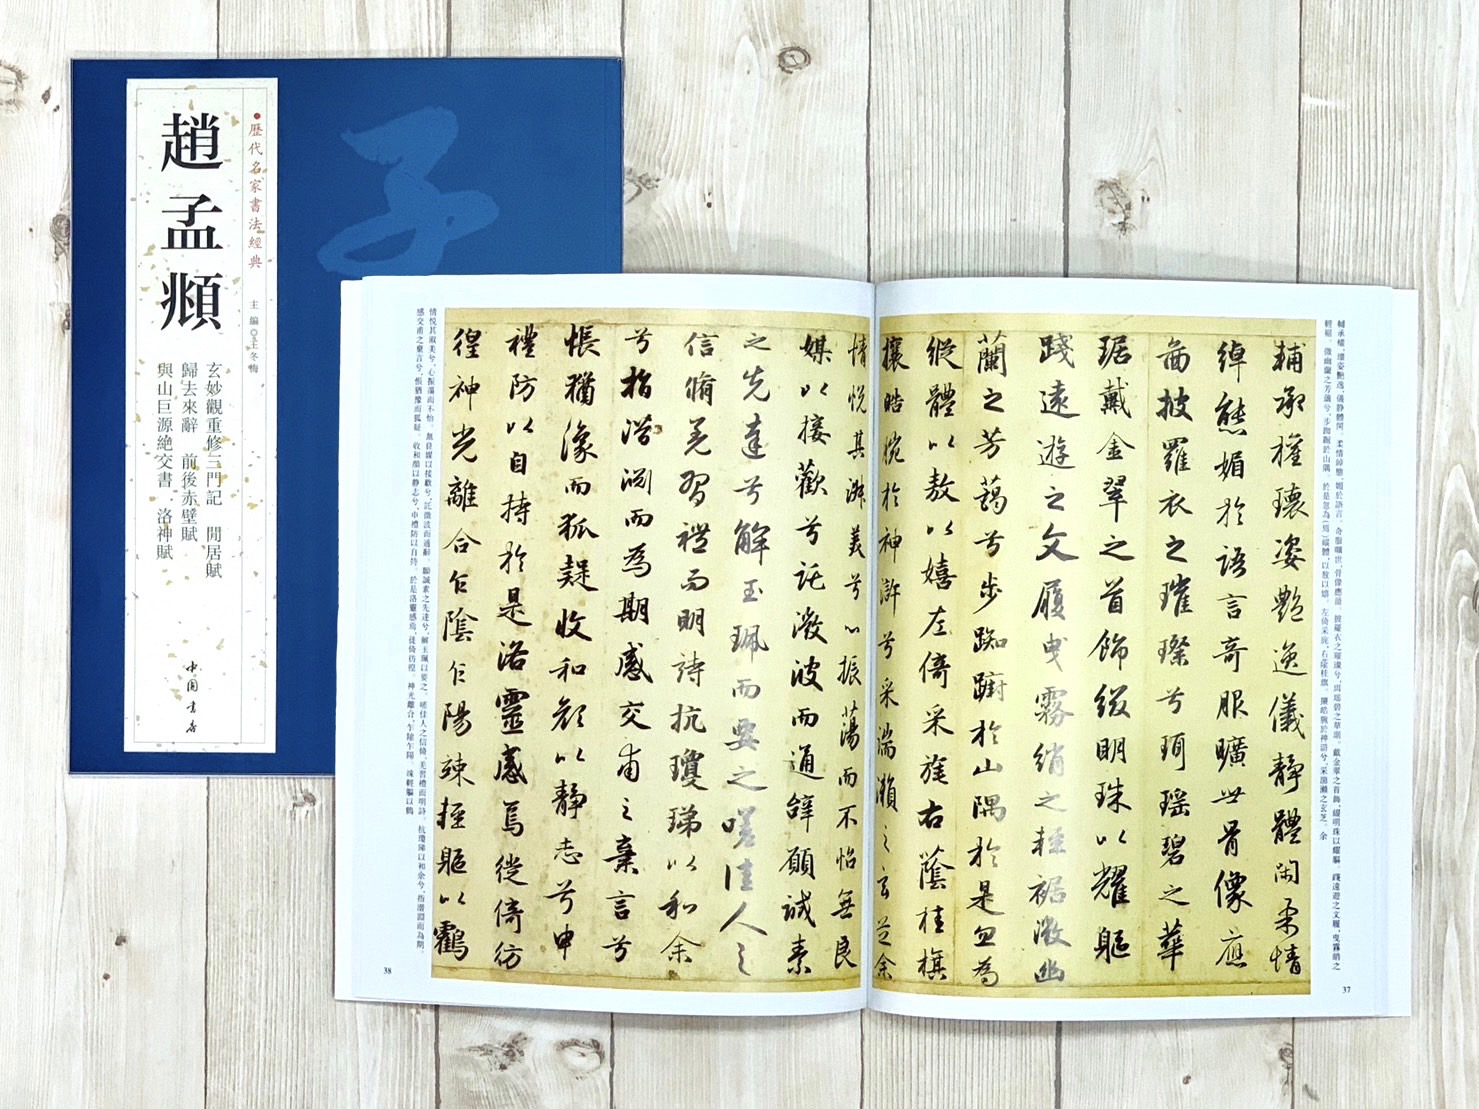 歷代名家書法經典
主編◎王冬梅
趙孟頫
玄妙觀重修三門記 閒居賦
歸去來辭 前後赤壁賦
與山巨源絕交書 洛神賦
中國書店
子
輔承權瓌姿艷逸儀静體閑柔情綽態媚於語言奇服曠世骨像應啚披羅衣之璀璨兮珥瑶碧之華琚戴金翠之首飾綴明珠以耀軀踐遠遊之文履曳霧綃之
輕裾微幽蘭之芳藹兮步踟躕於山隅於是忽為(焉)縱體以敖以嬉左倚采旄右蔭桂旗攘皓腕於神滸兮采湍瀨之玄芝余
輔承權瓌姿艷逸儀静體閑柔情
綽態媚於語言奇服曠世骨像應
啚披羅衣之璀璨兮珥瑶碧之華
琚戴金翠之首飾綴明珠以耀軀
踐遠遊之文履曳霧綃之輕裾微幽
蘭之芳藹兮步踟躕於山隅於是忽為
縱體以敖以嬉左倚采旄右蔭桂旗
攘皓腕於神滸兮采湍瀨之玄芝余
37
情悅其淑美兮心振蕩而不怡無良
媒以接歡兮託微波而通辭願誠素
之先達兮解玉珮而要之嗟佳人之
信脩羌習禮而明詩抗瓊珶以和余
兮指潛淵而為期感交甫之棄言兮
悵猶豫而狐疑收和顔以静志兮申
禮防以自持於是洛靈感焉徙倚彷
徨神光離合乍陰乍陽竦輕軀以鶴
情悅其淑美兮心振蕩而不怡無良媒以接歡兮託微波而通辭願誠素之先達兮解玉珮以要之嗟佳人之信脩羌習禮而明詩抗瓊珶以和余兮指潛淵而為期
感交甫之棄言兮悵猶豫而狐疑收和顔以静志兮申禮防以自持於是洛靈感焉徙倚彷徨神光離合乍陰乍陽竦輕軀以鶴
38